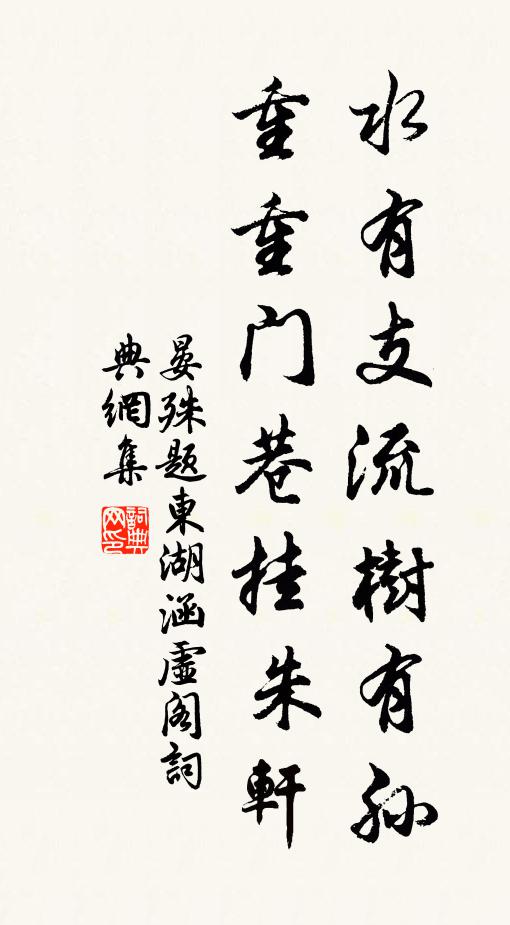 水有支流樹有孙
重重門巷挂朱軒
晏殊题東湖涵虛阁詞
典網集
詞典网印